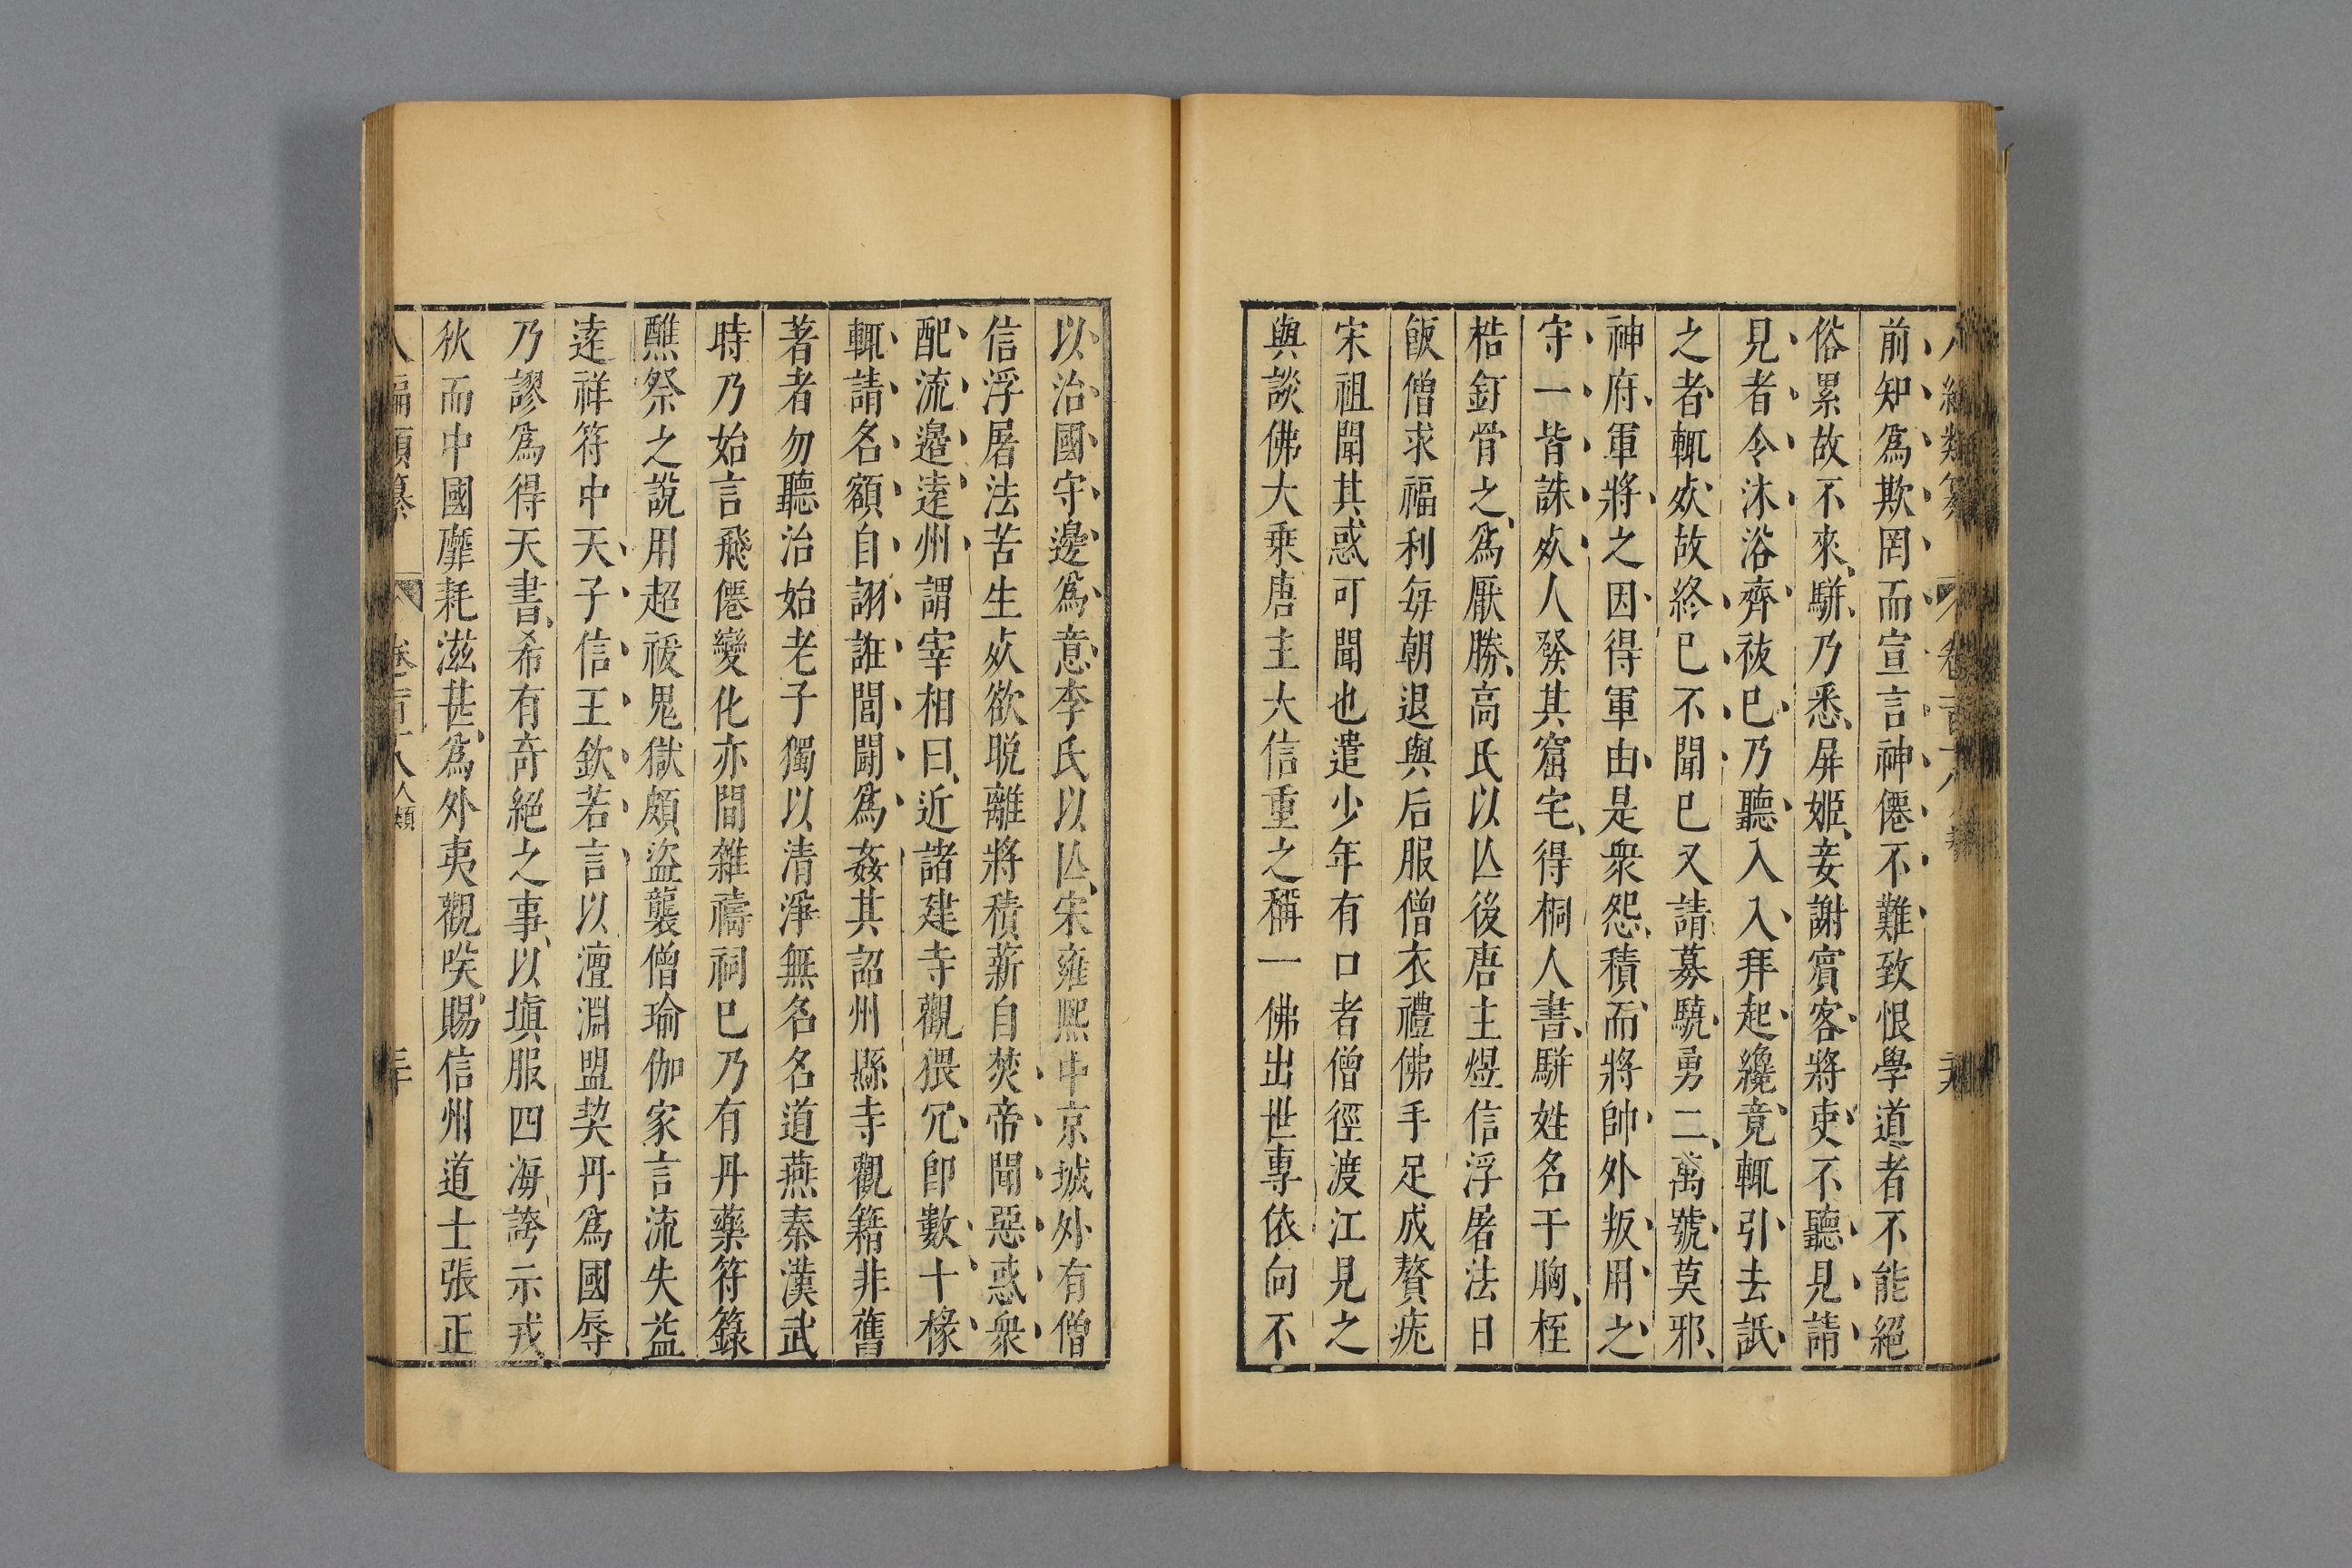 前知爲欺罔而宣言神僊不難致恨學道者不能絕
俗累故不來駢乃悉屏姬妾謝賓客將吏不聽見請
見者令沐浴齊祓巳乃聽入入拜起纔竟輒引去詆
之者輒㱙故終巳不聞巳又請募驍勇二萬號莫邪
神府軍將之因得軍由是衆怨積而將帥外叛用之
守一皆誅㱙人發其窟宅得桐人書駢姓名于胸桎
梏釘骨之爲厭勝高氏以亾後唐主煜信浮屠法日
飯僧求福利每朝退與后服僧衣禮佛手足成贅疣
宋祖聞其惑可聞也遣少年有口者僧徑渡江見之
與談佛大乗唐主大信重之稱一佛出世專依向不
以治國守邊爲意李氏以亾宋雍熙中京城外有僧
信浮屠法苦生㱙欲脱離將積薪自焚帝聞惡惑衆
配流邊遠州謂宰相曰近諸建寺觀猥冗卽數十椽
輒請名額自詡誑閭閻爲姦其詔州縣寺觀籍非舊
著者勿聽治始老子獨以清淨無名名道燕秦漢武
時乃始言飛僊變化亦間雜禱祠巳乃有丹藥符籙
醮祭之說用超祓鬼獄頗盜襲僧瑜伽家言流失益
遠祥符中天子信王欽若言以澶淵盟契丹爲國辱
乃謬爲得天書希有奇絕之事以塡服四海誇示戎
狄而中國靡耗滋甚爲外夷觀咲賜信州道士張正